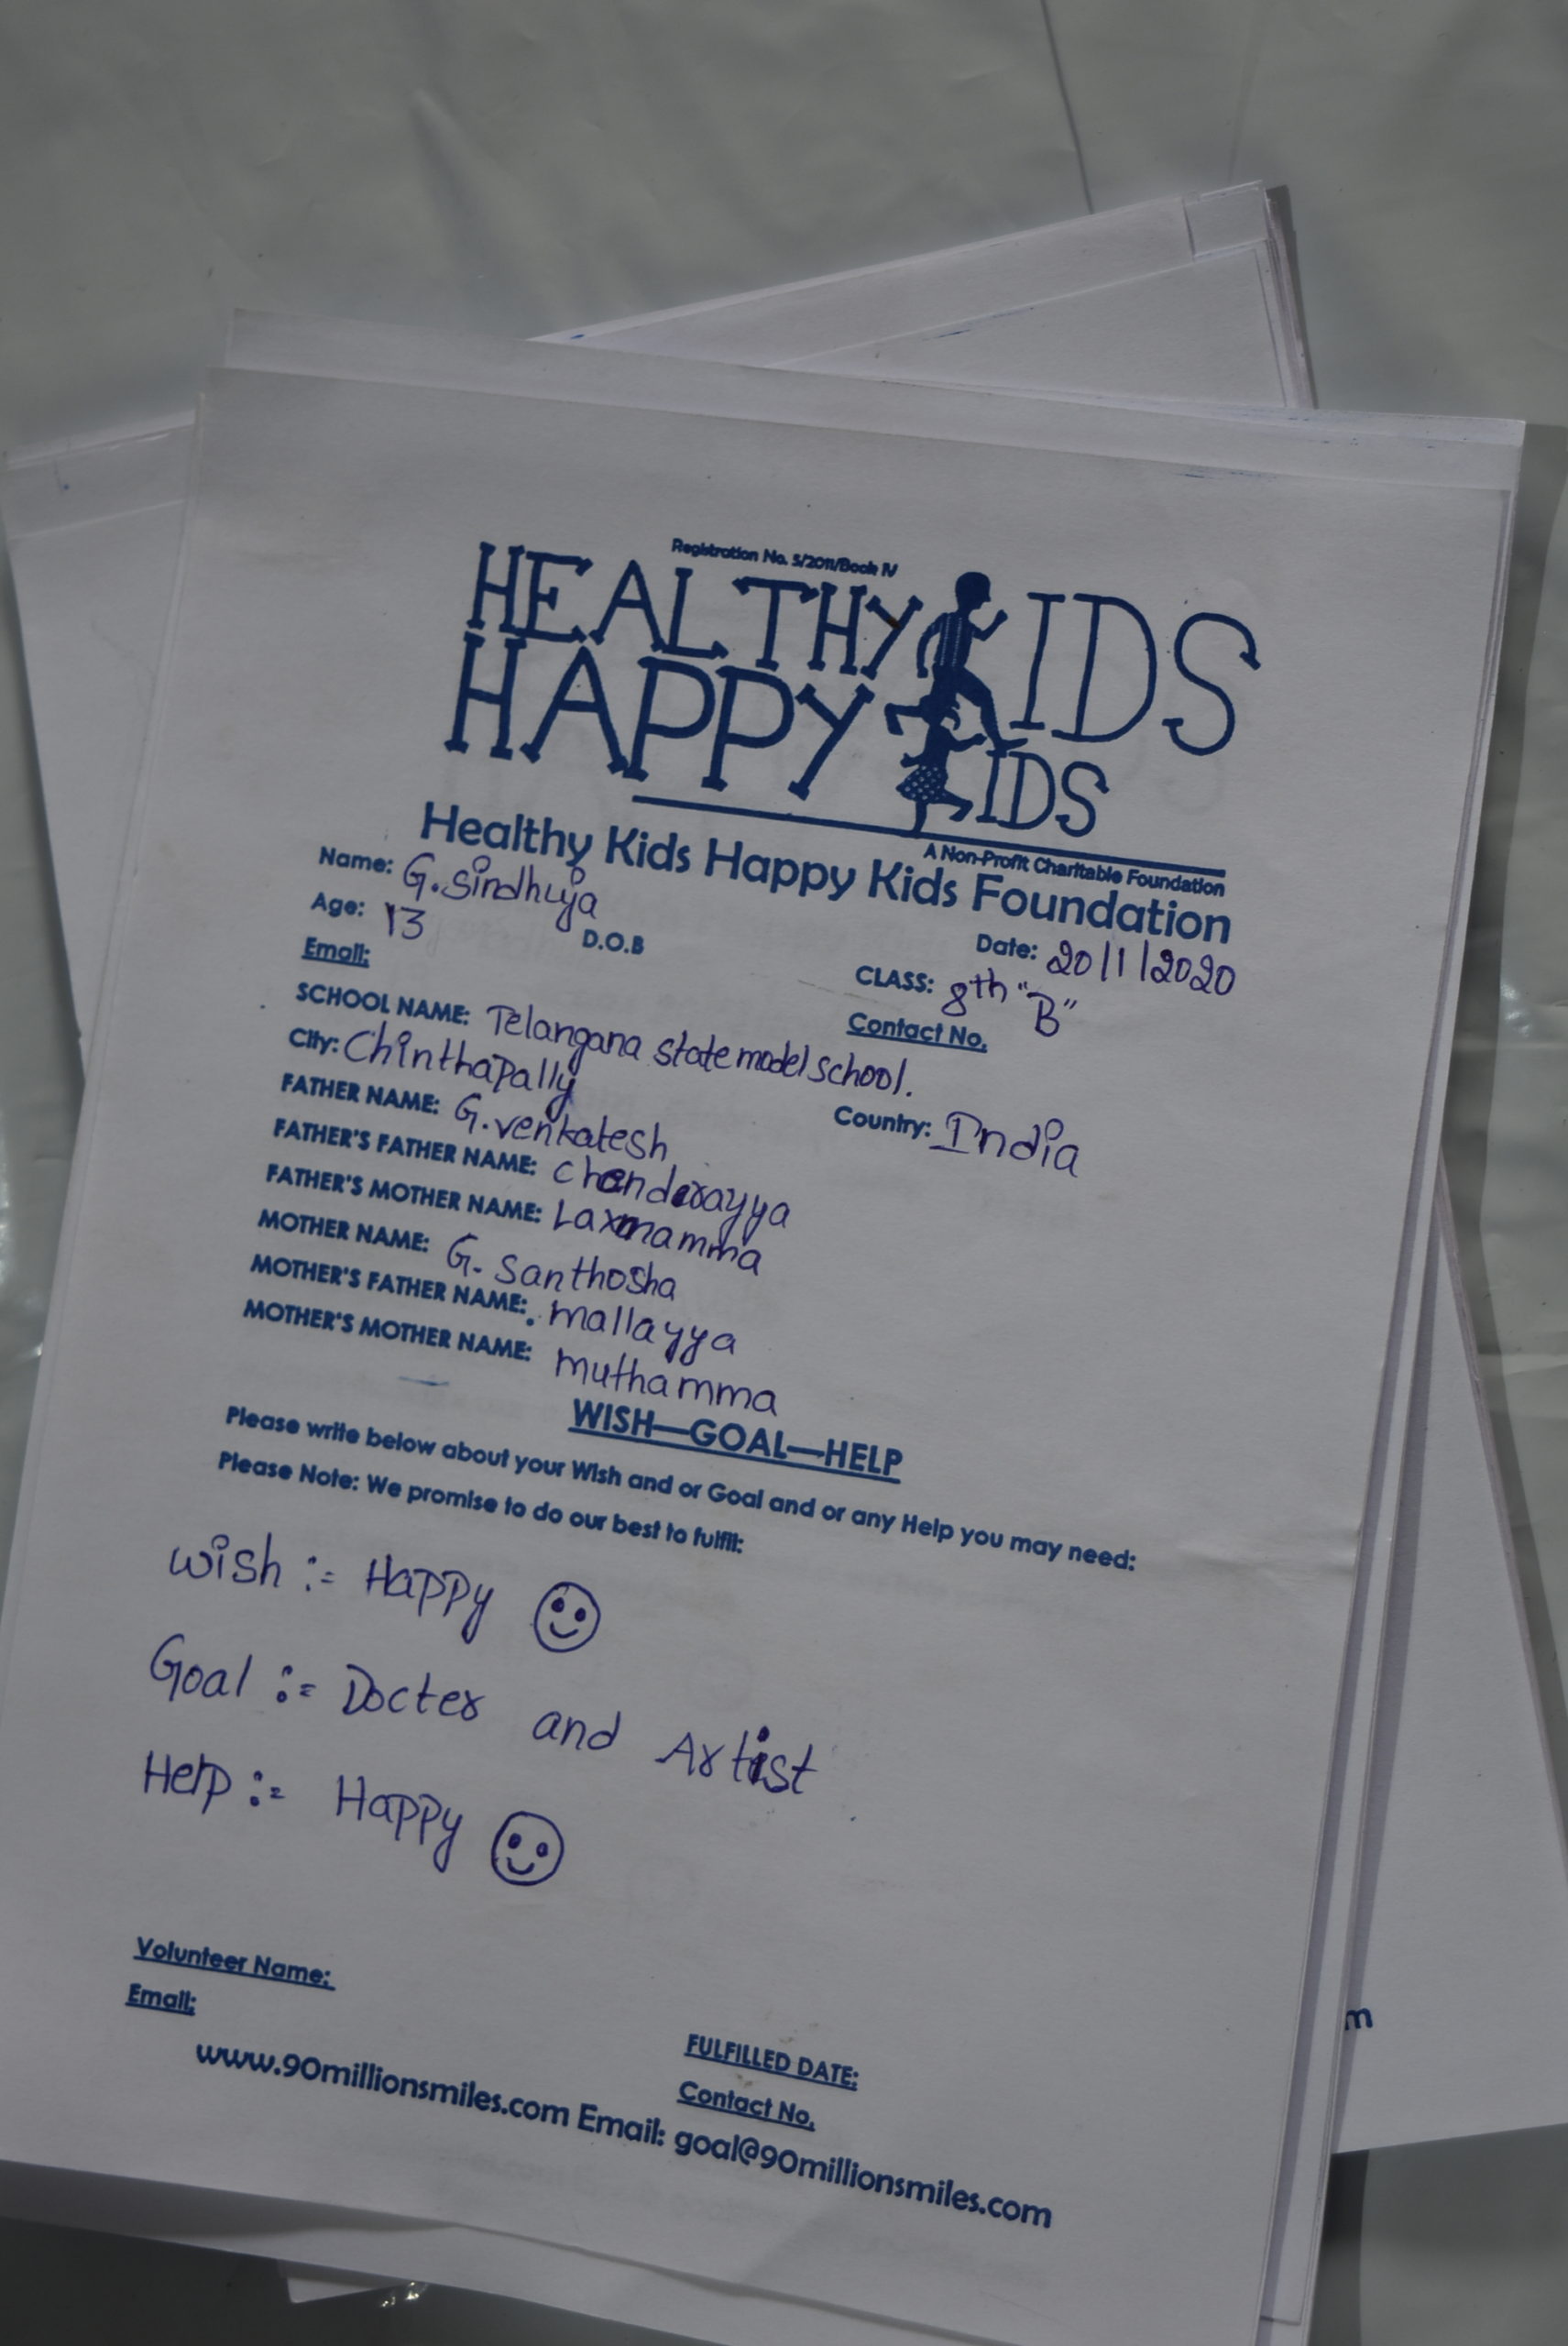 Registration No. 5/2011/Book IV
HEALTHY KIDS
HAPPY KIDS
A Non-Profit Charitable Foundation
Healthy Kids Happy Kids Foundation
Name: G.Sindhuja Date: 20/1/2020
Age: 13 D.O.B CLASS: 8th "B"
Email: Contact No.
SCHOOL NAME: Telangana state model school.
City: Chinthapally Country: India
FATHER NAME: G.venkatesh
FATHER'S FATHER NAME: Chanderayya
FATHER'S MOTHER NAME: Laxmamma
MOTHER NAME: G. Santhosha
MOTHER'S FATHER NAME: mallayya
MOTHER'S MOTHER NAME: muthamma
WISH—GOAL—HELP
Please write below about your Wish and or Goal and or any Help you may need:
Please Note: We promise to do our best to fulfil:
Wish := Happy ☺
Goal := Docter and Artist
Help := Happy ☺
Volunteer Name: FULFILLED DATE:
Email: Contact No.
www.90millionsmiles.com Email: goal@90millionsmiles.com
m